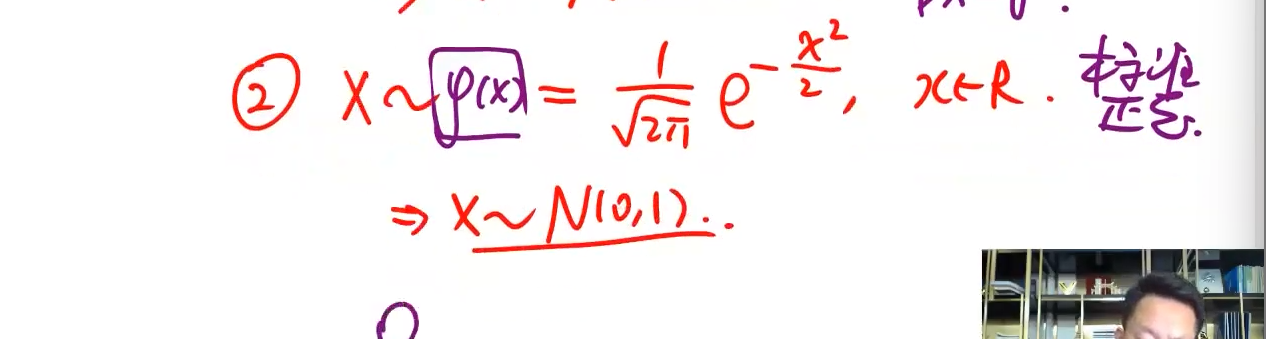 ② X~φ(x) = 1/√2π e^(-x²/2), x∈R. 标准
正态.
⇒ X~N(0,1)..